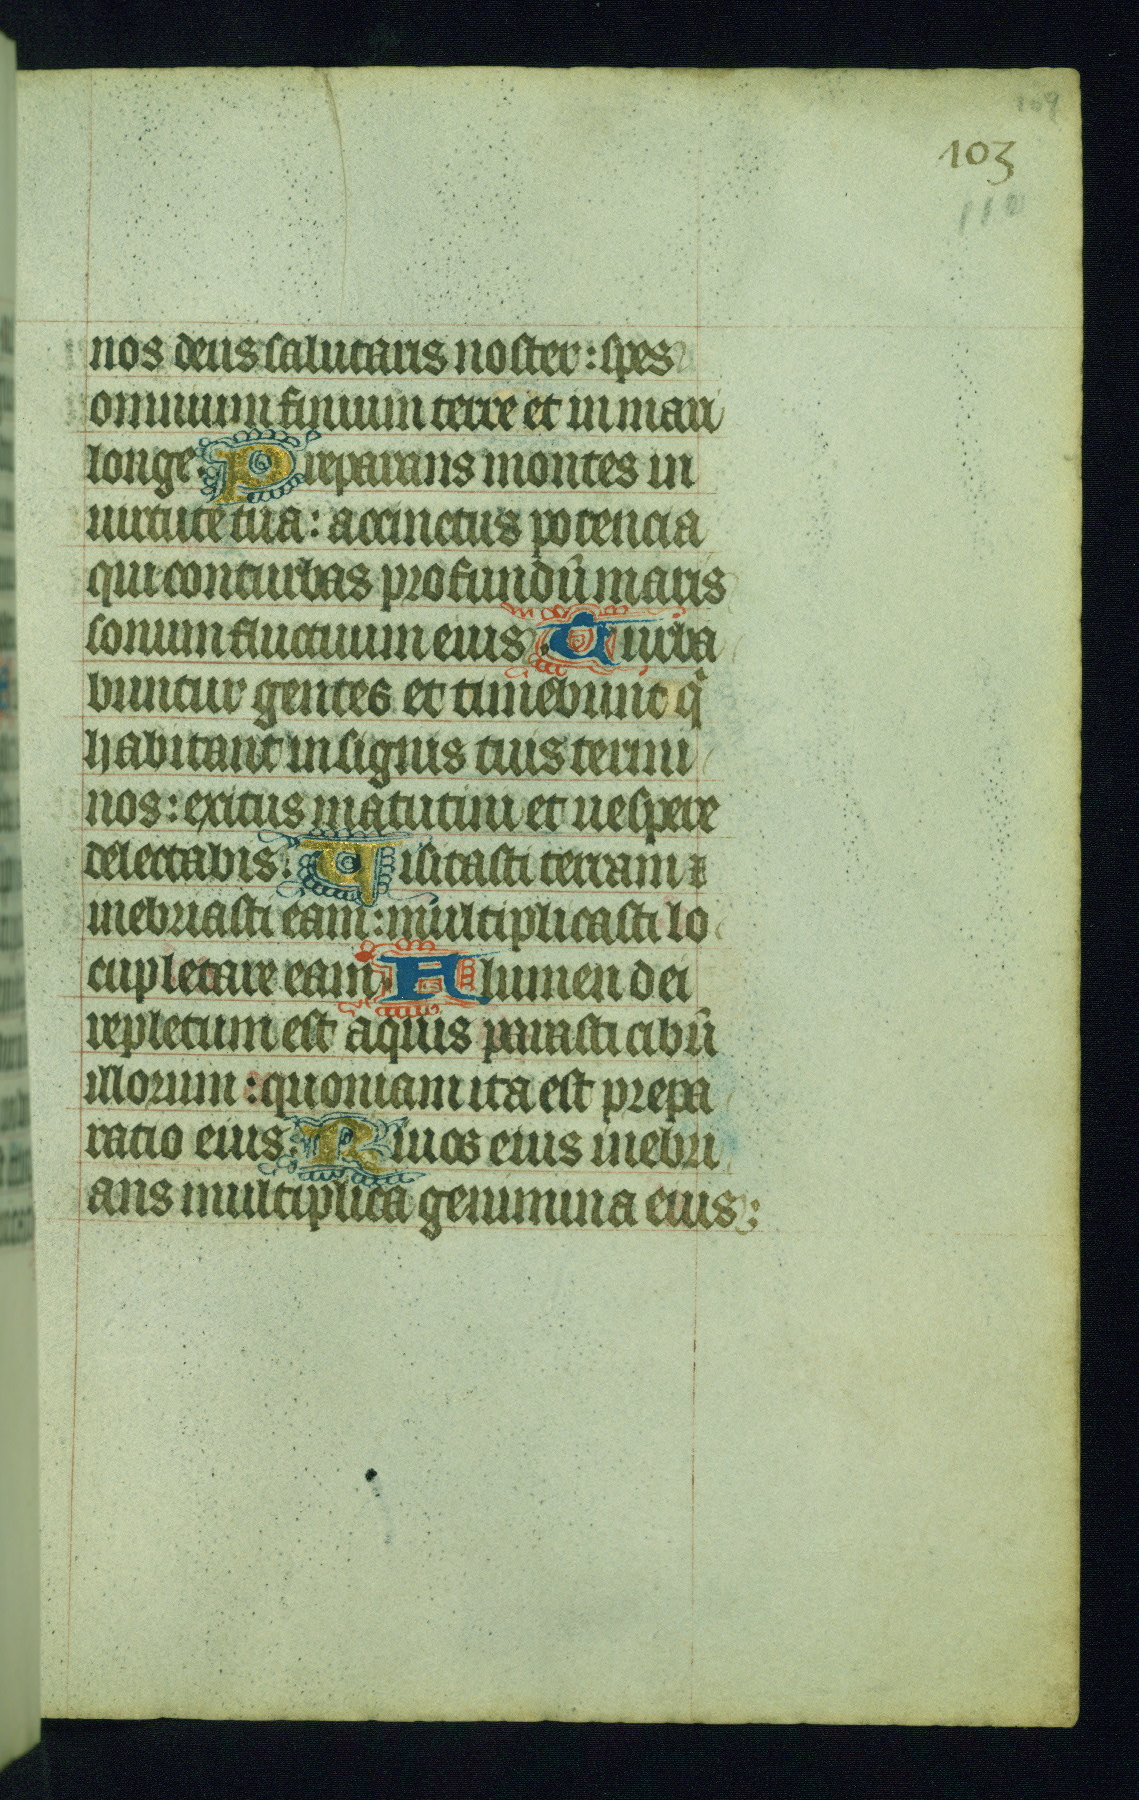 109
103
110
nos deus salutaris noster: spes
omnium finium terre et in mari
longe. Preparans montes in
uirtute tua: accinctus potencia
qui conturbas profundū maris
sonum fluctuum eius. Turba
buntur gentes et timebunt q̄
habitant in signis tuis termi
nos: exitus matutini et uespere
delectabis. Uisitasti terram ⁊
inebriasti eam: multiplicasti lo
cupletare eam. Flumen dei
repletum est aquis parasti cibū
illorum: quoniam ita est prepa
ratio eius. Riuos eius inebri
ans multiplica genimina eius: